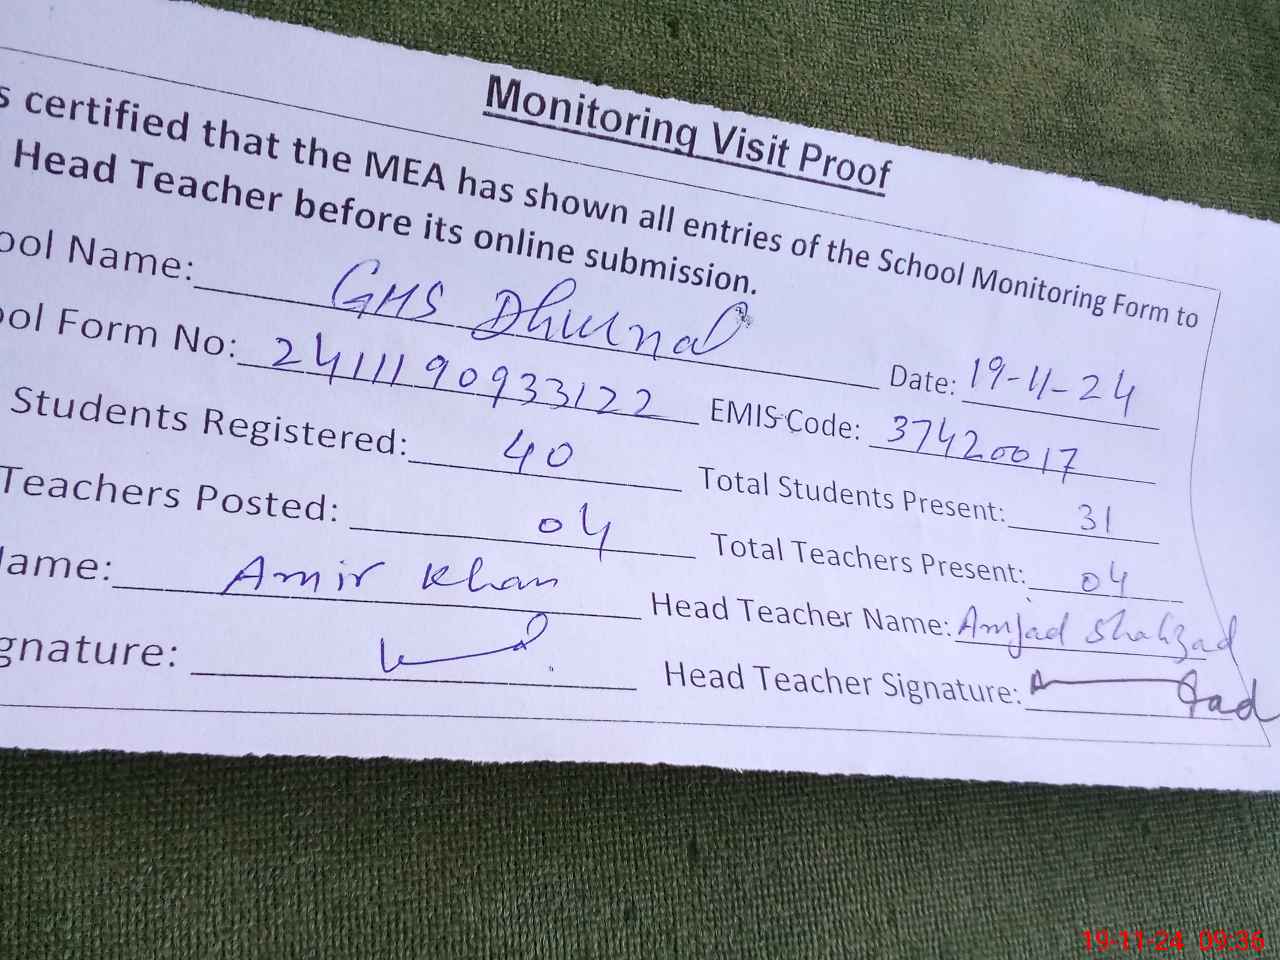 Monitoring Visit Proof
s certified that the MEA has shown all entries of the School Monitoring Form to
Head Teacher before its online submission.
ool Name: GHS Dhurnal Date: 19-11-24
ool Form No: 24111190933122 EMIS Code: 37420017
Students Registered: 40 Total Students Present: 31
Teachers Posted: 04 Total Teachers Present: 04
ame: Amir Khan Head Teacher Name: Amjad Shahzad
gnature: Head Teacher Signature:
19-11-24 09:36